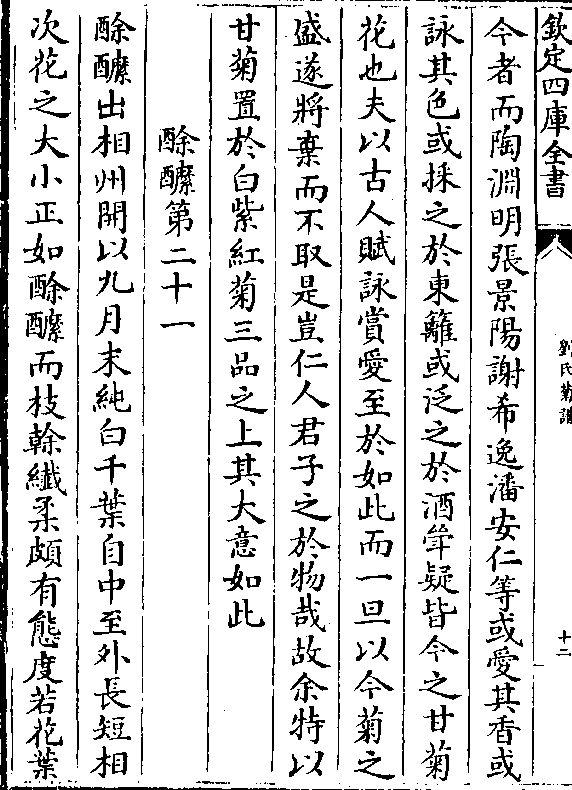 欽定四庫全書
劉氏菊譜
十二
今者而陶淵明張景陽謝希逸潘安仁等或愛其香或
詠其色或採之於東籬或泛之於酒斝疑皆今之甘菊
花也夫以古人賦詠賞愛至於如此而一旦以今菊之
盛遂將棄而不取是豈仁人君子之於物哉故余特以
甘菊置於白紫紅菊三品之上其大意如此
酴醿第二十一
酴醿出相州開以九月末純白千葉自中至外長短相
次花之大小正如酴醿而枝榦纖柔頗有態度若花葉